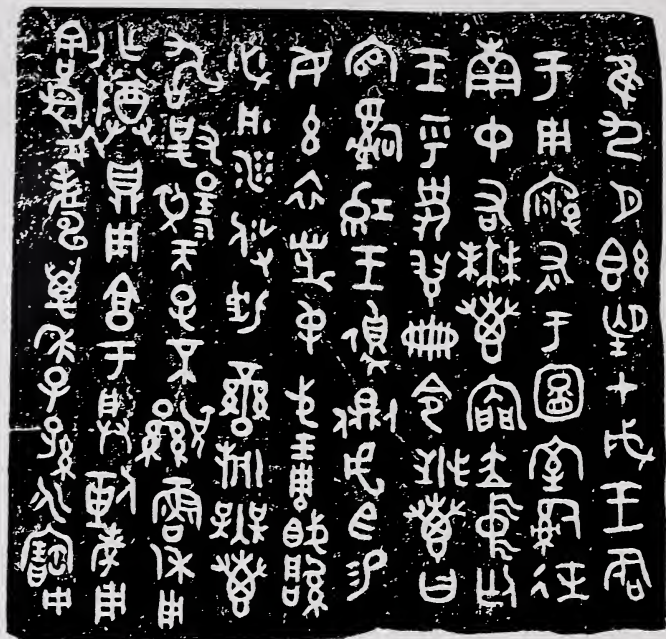 隹九月既望甲戌王各
于周廟述于圖室𤔲徒
南中右無叀內門立中廷
王乎史翏冊令無叀曰
官𤔲王側虎臣易
女玄衣黹屯戈琱厚
必彤沙攸勒鑾旂無叀
敢對揚天子不顯魯休用
乍尊鼎用享于朕烈考用
割眉壽萬年子孫永寶用